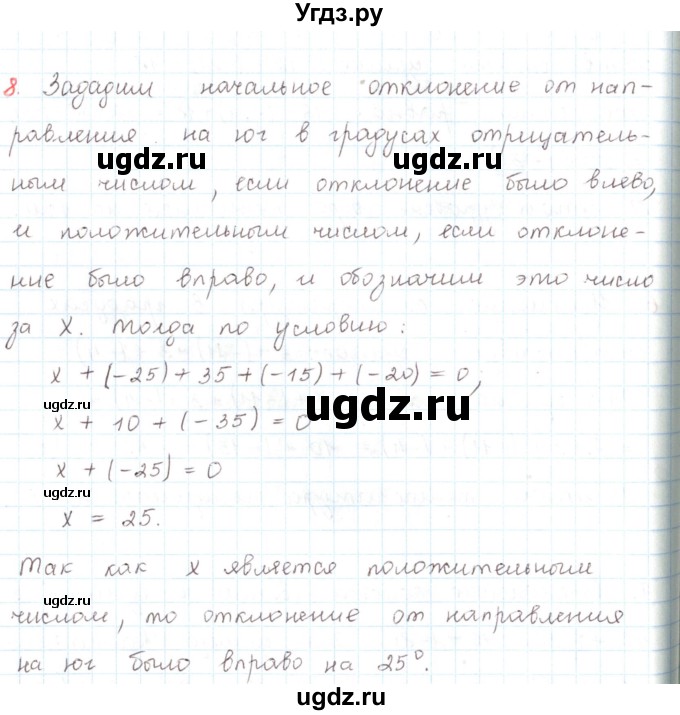 Угдз.ру
8. Зададим начальное отклонение от нап-
равления на юг в градусах отрицатель-
ugdz.ru ugdz.ru
ным числом, если отклонение было влево,
и положительным числом, если отклоне-
ние было вправо, и обозначим это число
за x. Тогда по условию:
x + (-25) + 35 + (-15) + (-20) = 0,
ugdz.ru ugdz.ru
x + 10 + (-35) = 0
x + (-25) = 0
ugdz.ru
x = 25.
Так как x является положительным
ugdz.ru
числом, то отклонение от направления
на юг было вправо на 25°.
ugdz.ru